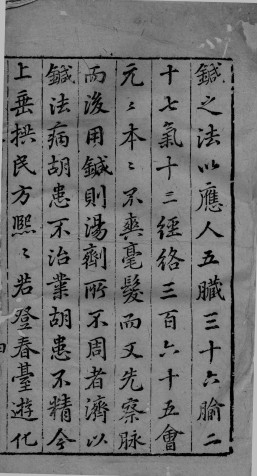 鍼之法以應人五臟三十六腧二
十七氣十三經絡三百六十五會
元〻本〻不爽毫髮而又先察脉
而後用鍼則湯劑所不周者濟以
鍼法病胡患不治業胡患不精今
上垂拱民方熙〻若登春臺遊化